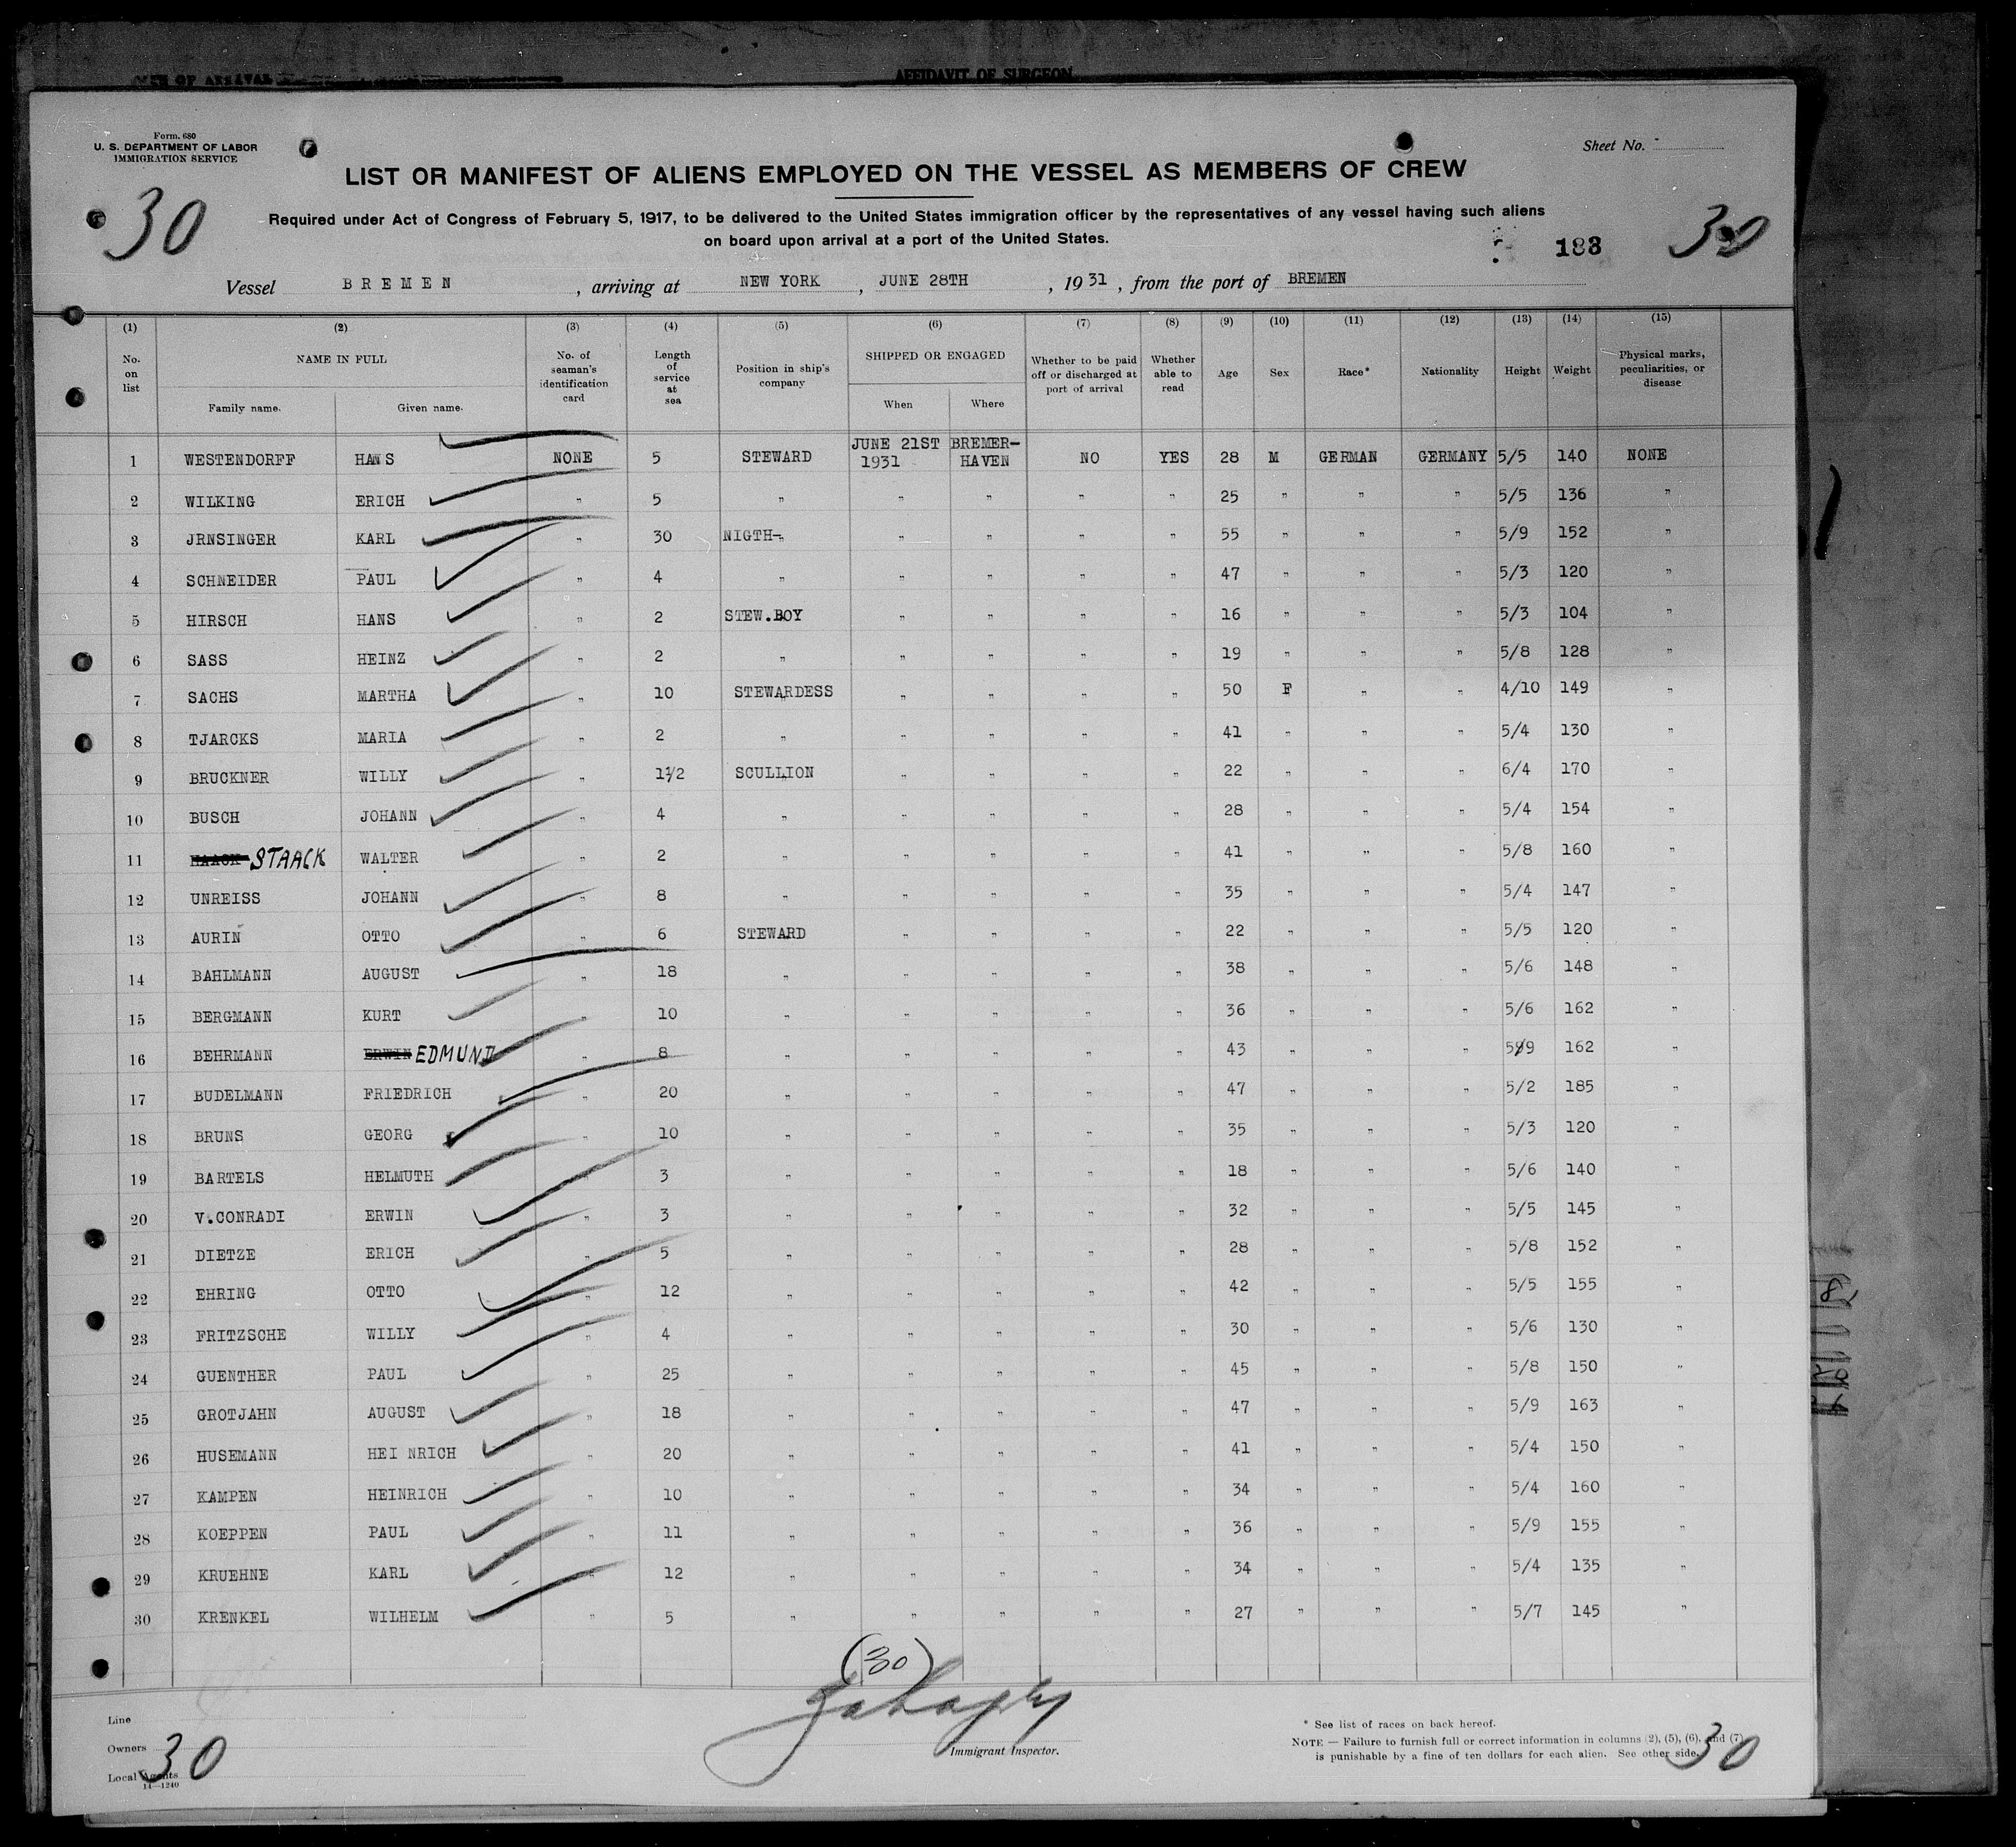 AFFIDAVIT OF SURGEON
Form. 680
U. S. DEPARTMENT OF LABOR
IMMIGRATION SERVICE
Sheet No.
LIST OR MANIFEST OF ALIENS EMPLOYED ON THE VESSEL AS MEMBERS OF CREW
30
Required under Act of Congress of February 5, 1917, to be delivered to the United States immigration officer by the representatives of any vessel having such aliens
on board upon arrival at a port of the United States.
183
30
Vessel BREMEN , arriving at NEW YORK , JUNE 28TH , 1931 , from the port of BREMEN
(1) (2) (3) (4) (5) (6) (7) (8) (9) (10) (11) (12) (13) (14) (15)
No. on list NAME IN FULL Family name. Given name. No. of seaman's identification card Length of service at sea Position in ship's company SHIPPED OR ENGAGED When Where Whether to be paid off or discharged at port of arrival Whether able to read Age Sex Race* Nationality Height Weight Physical marks, peculiarities, or disease
1 WESTENDORFF HANS NONE 5 STEWARD JUNE 21ST 1931 BREMER-HAVEN NO YES 28 M GERMAN GERMANY 5/5 140 NONE
2 WILKING ERICH " 5 " " " " " 25 " " " 5/5 136 "
3 JRNSINGER KARL " 30 NIGTH-" " " " " 55 " " " 5/9 152 "
4 SCHNEIDER PAUL " 4 " " " " " 47 " " " 5/3 120 "
5 HIRSCH HANS " 2 STEW.BOY " " " " 16 " " " 5/3 104 "
6 SASS HEINZ " 2 " " " " " 19 " " " 5/8 128 "
7 SACHS MARTHA " 10 STEWARDESS " " " " 50 F " " 4/10 149 "
8 TJARCKS MARIA " 2 " " " " " 41 " " " 5/4 130 "
9 BRUCKNER WILLY " 1 1/2 SCULLION " " " " 22 " " " 6/4 170 "
10 BUSCH JOHANN " 4 " " " " " 28 " " " 5/4 154 "
11 HAACK STAACK WALTER " 2 " " " " " 41 " " " 5/8 160 "
12 UNREISS JOHANN " 8 " " " " " 35 " " " 5/4 147 "
13 AURIN OTTO " 6 STEWARD " " " " 22 " " " 5/5 120 "
14 BAHLMANN AUGUST " 18 " " " " " 38 " " " 5/6 148 "
15 BERGMANN KURT " 10 " " " " " 36 " " " 5/6 162 "
16 BEHRMANN ERWIN EDMUND " 8 " " " " " 43 " " " 5/9 162 "
17 BUDELMANN FRIEDRICH " 20 " " " " " 47 " " " 5/2 185 "
18 BRUNS GEORG " 10 " " " " " 35 " " " 5/3 120 "
19 BARTELS HELMUTH " 3 " " " " " 18 " " " 5/6 140 "
20 V.CONRADI ERWIN " 3 " " " " " 32 " " " 5/5 145 "
21 DIETZE ERICH " 5 " " " " " 28 " " " 5/8 152 "
22 EHRING OTTO " 12 " " " " " 42 " " " 5/5 155 "
23 FRITZSCHE WILLY " 4 " " " " " 30 " " " 5/6 130 "
24 GUENTHER PAUL " 25 " " " " " 45 " " " 5/8 150 "
25 GROTJAHN AUGUST " 18 " " " " " 47 " " " 5/9 163 "
26 HUSEMANN HEI NRICH " 20 " " " " " 41 " " " 5/4 150 "
27 KAMPEN HEINRICH " 10 " " " " " 34 " " " 5/4 160 "
28 KOEPPEN PAUL " 11 " " " " " 36 " " " 5/9 155 "
29 KRUEHNE KARL " 12 " " " " " 34 " " " 5/4 135 "
30 KRENKEL WILHELM " 5 " " " " " 27 " " " 5/7 145 "
(30)
Line
Owners
Local Agents
14—1240
30
Immigrant Inspector.
* See list of races on back hereof.
NOTE — Failure to furnish full or correct information in columns (2), (5), (6), and (7)
is punishable by a fine of ten dollars for each alien. See other side.
30